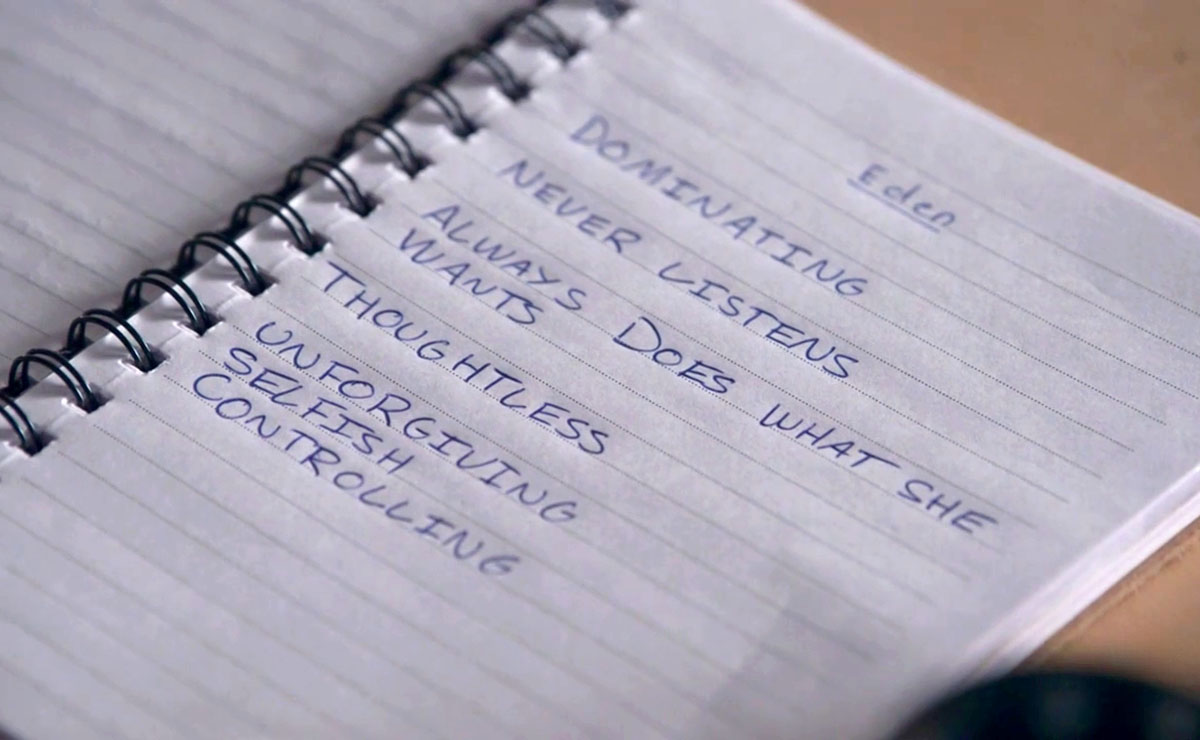 Eden
DOMINATING
NEVER LISTENS
ALWAYS DOES WHAT SHE
WANTS
THOUGHTLESS
UNFORGIVING
SELFISH
CONTROLLING